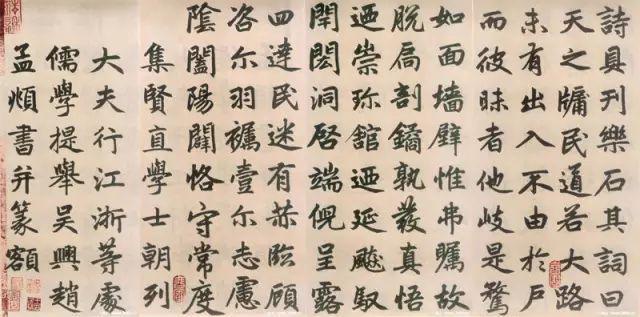 詩具刊樂石其詞曰
天之牖民道若大路
未有出入不由於戶
而彼昧者他岐是騖
如面墙壁惟弗矚故
脱扃剖鐍孰發真悟
迺崇珎舘迺延飈馭
閈閎洞啓端倪呈露
四達民迷有赫臨顧
咨尔羽襹壹尔志慮
陰闔陽闢恪守常度
集賢直學士朝列
大夫行江浙等處
儒學提舉吴興趙
孟頫書并篆額